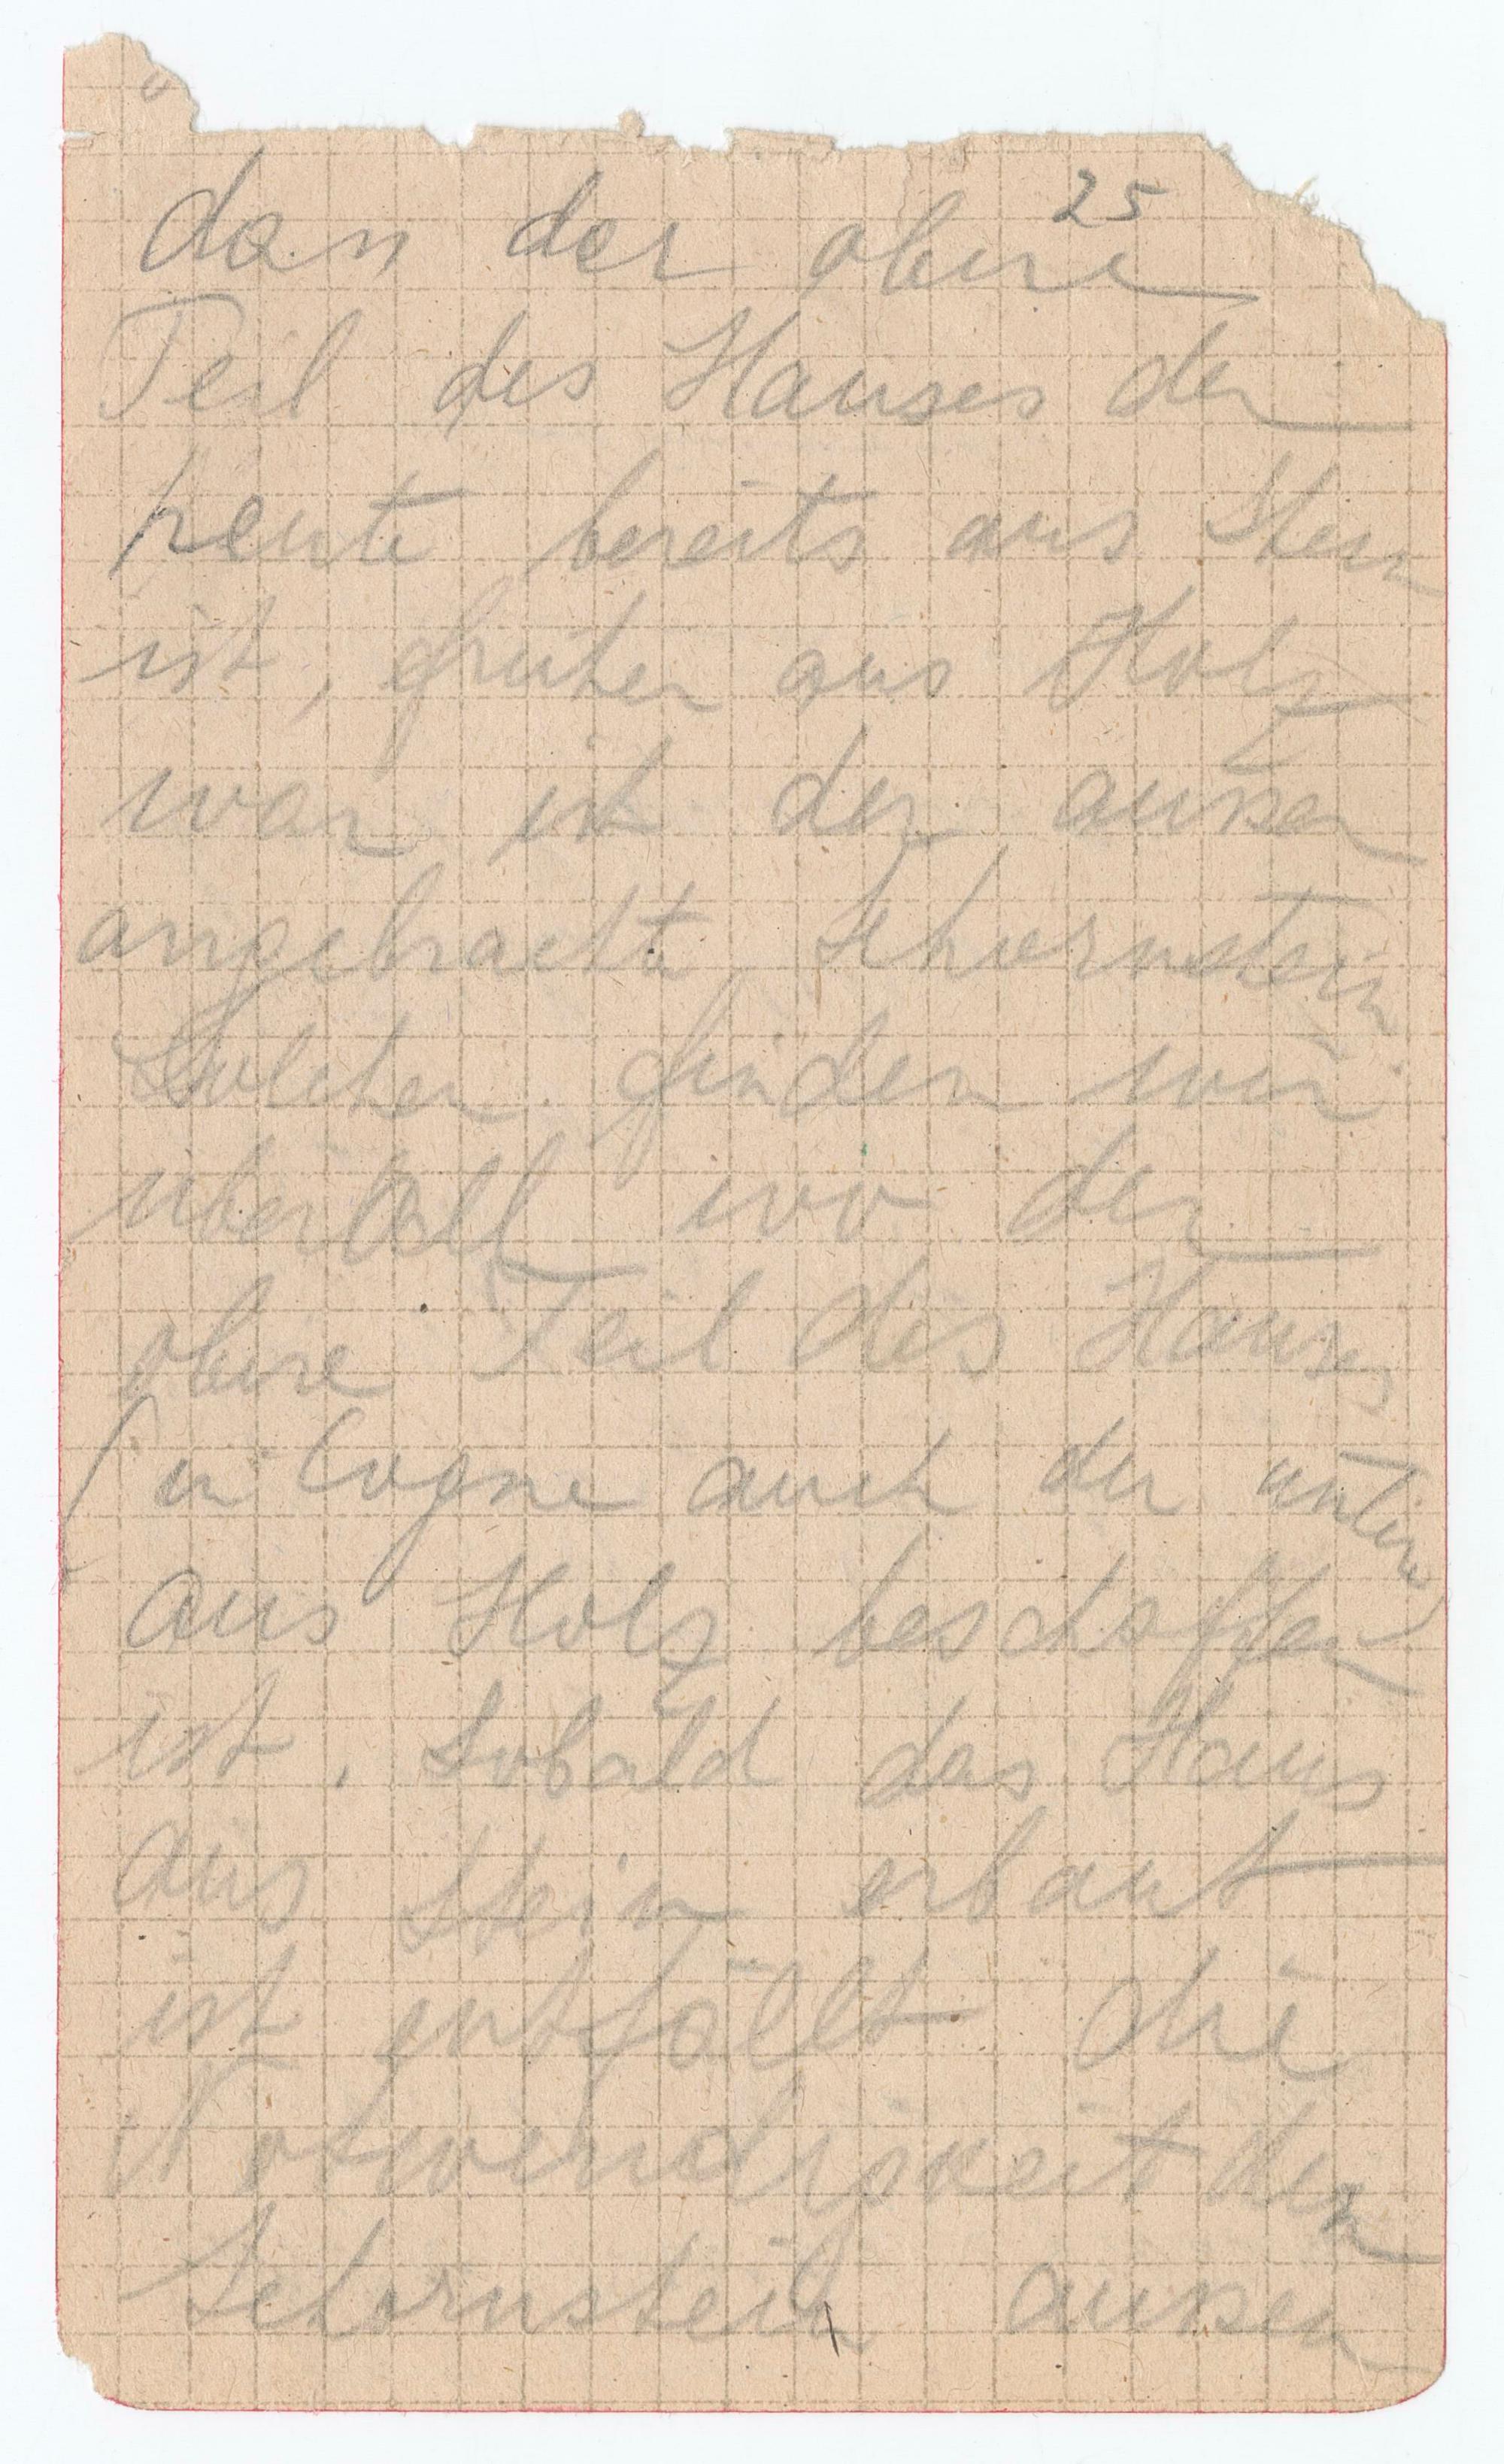 25
dan der obere
Teil des Hauses der
heute bereits aus Stein
ist, früher aus Holz
war ist der aussen
angebrachte Schornstein
Solchen finden wir
überall wo der
obere Teil des Hauses
(in Cogne auch der untere)
aus Holz beschaffen
ist. Sobald das Haus
aus Stein erbaut
ist entfällt die
Notwendigkeit den
Schornstein aussen